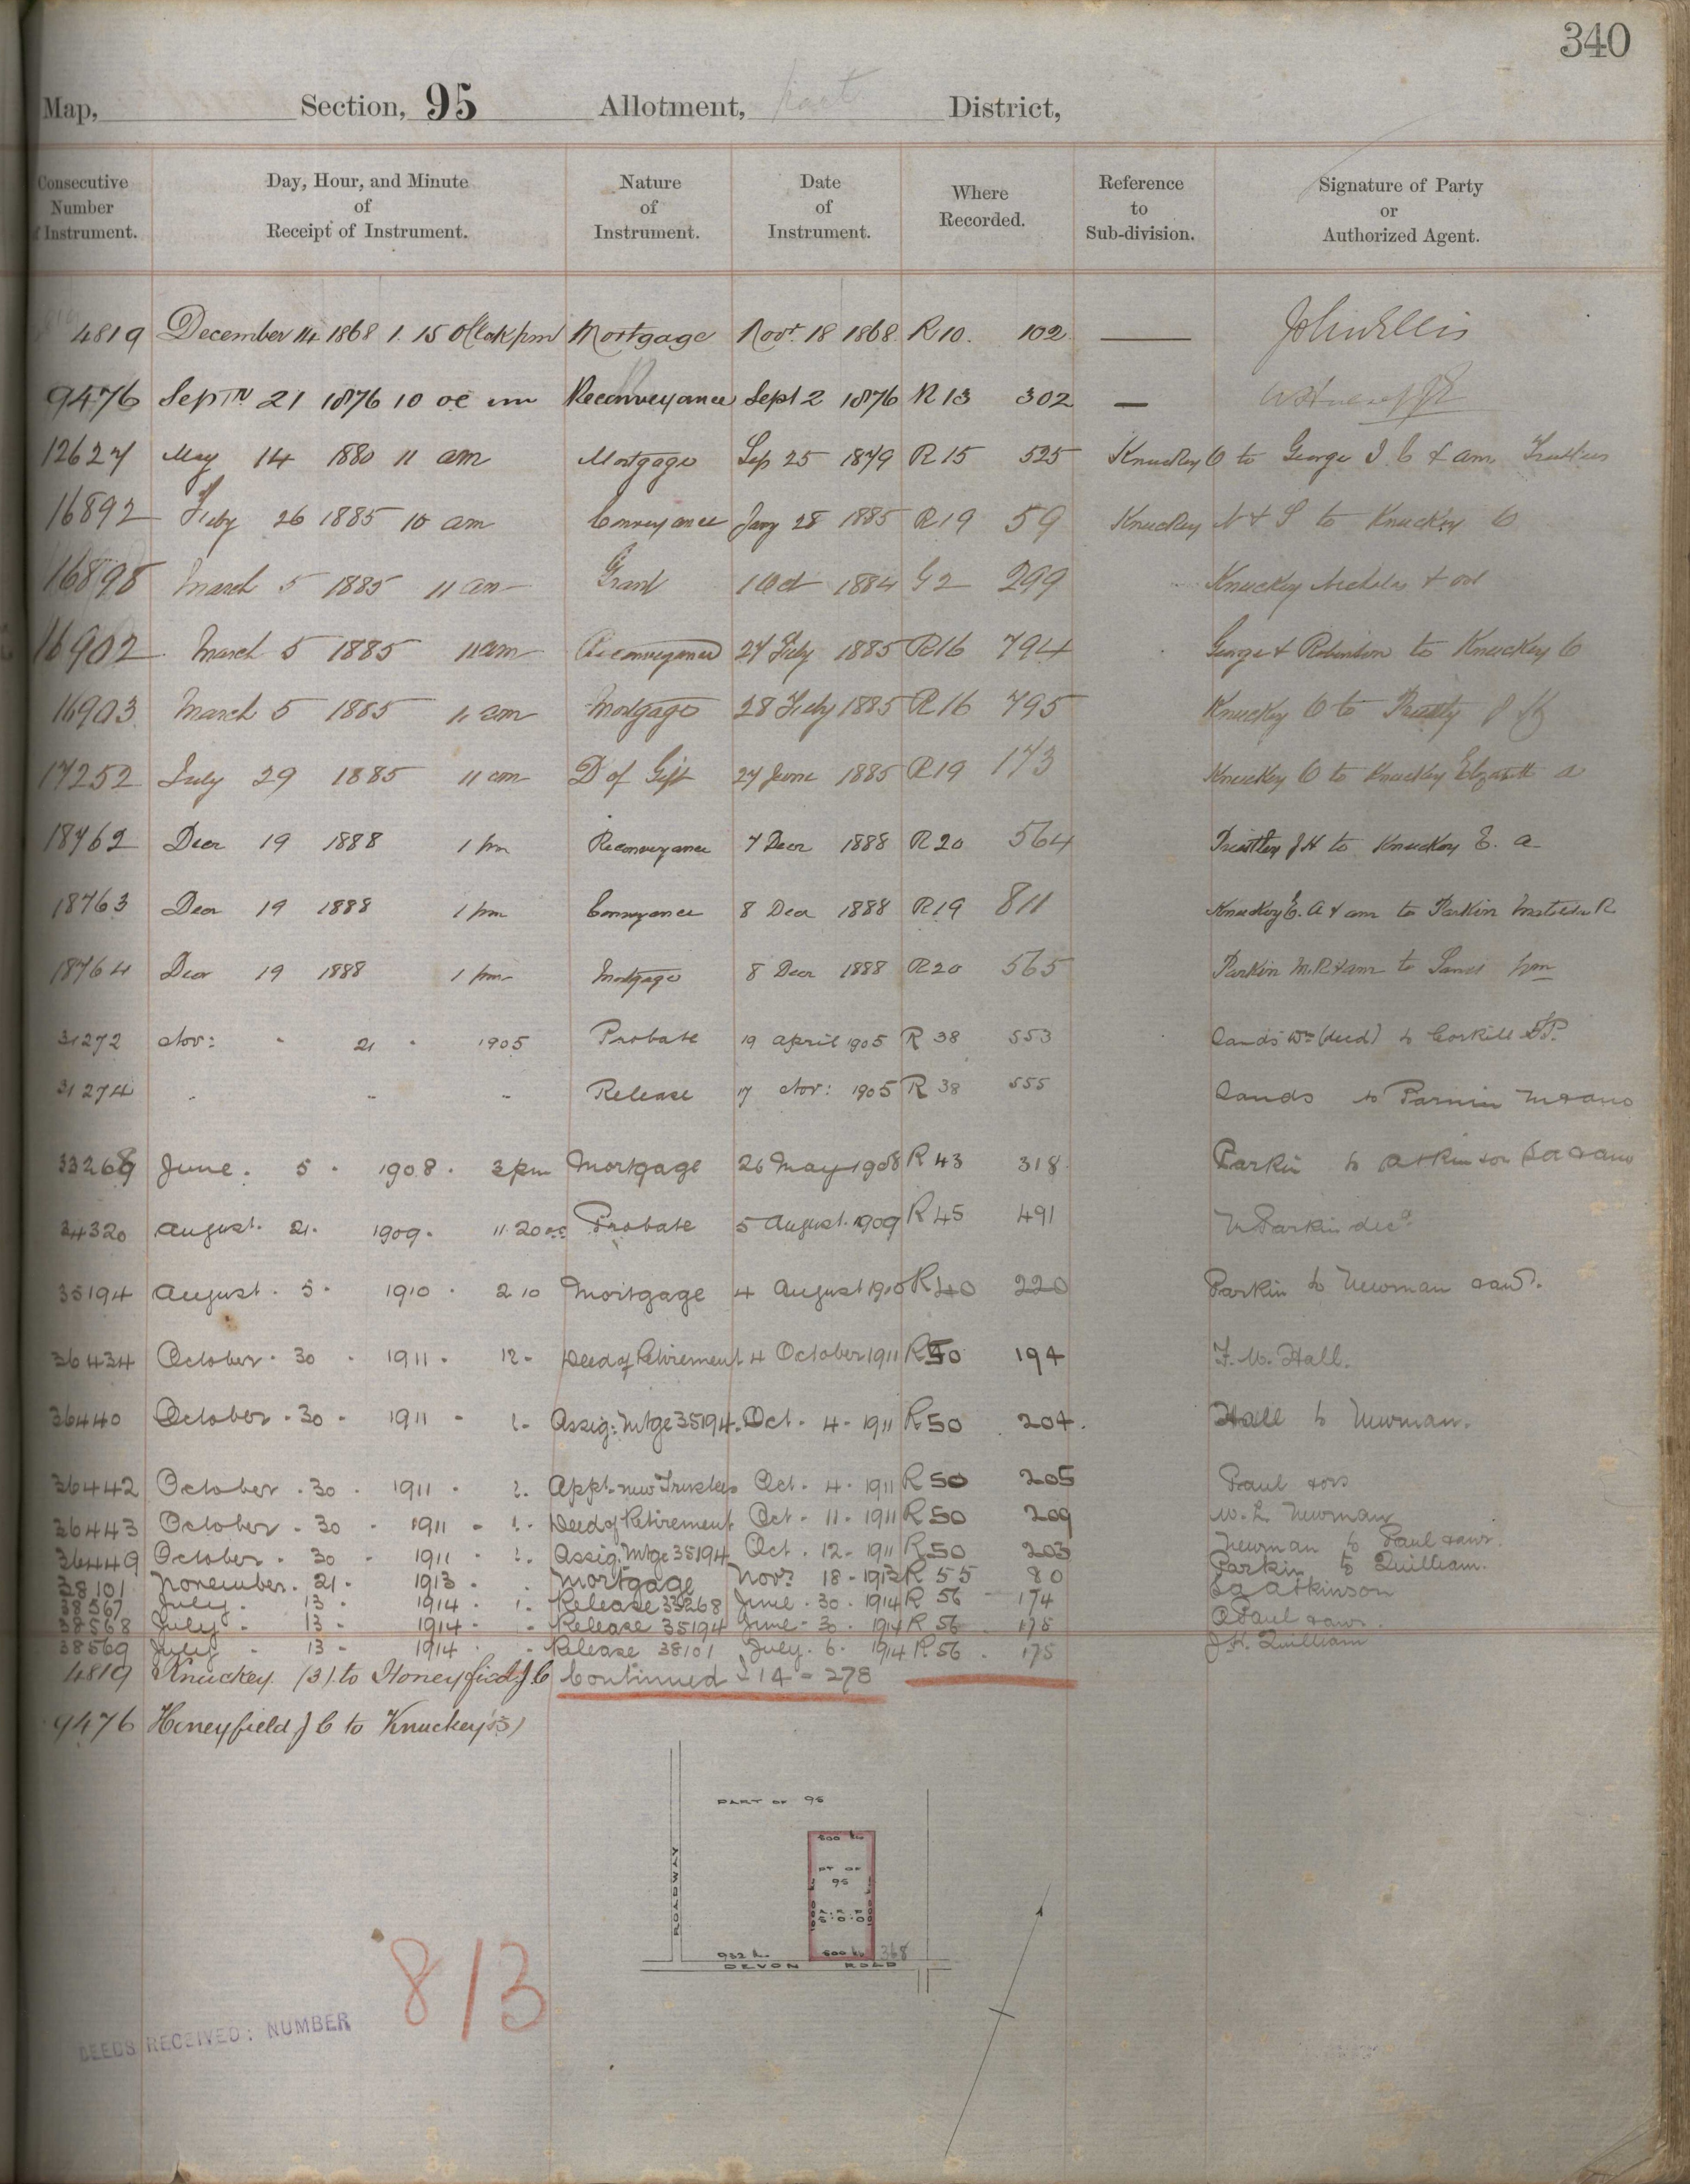 340
Map, Section, 95 Allotment, part District,
Consecutive Number of Instrument. Day, Hour, and Minute of Receipt of Instrument. Nature of Instrument. Date of Instrument. Where Recorded. Reference to Sub-division. Signature of Party or Authorized Agent.
4819 December 14 1868 1. 15 O'Clok pm Mortgage Novr 18 1868 R10. 102 John Ellis
9476 Sepr 21 1876 10 Reconveyance Sept 2 1876 R 13 302
12627 May 14 1880 11 am Mortgage Sep 25 1879 R 15 525 Knuckey O to George J. C & anr Trustees
16892 Feby 26 1885 10 am Conveyance Jany 28 1885 R 19 59 Knuckey N & S to Knuckey O
16898 March 5 1885 11 am Grant 1 Oct 1884 G 2 299 Knuckey Nicholas & anr
16902 March 5 1885 11 am Reconveyance 27 Feby 1885 R16 794 George & Robinson to Knuckey O
16903 March 5 1885 11 am Mortgage 28 Feby 1885 R16 795 Knuckey O to Priestly J H
17252 July 29 1885 11 am D of Gift 27 June 1885 R19 173 Knuckey O to Knuckey Elizabeth A
18762 Decr 19 1888 1 pm Reconveyance 7 Decr 1888 R 20 564 Priestley J H to Knuckey E. A
18763 Decr 19 1888 1 pm Conveyance 8 Decr 1888 R19 811 Knuckey E. A & anr to Parkin Matilda R
18764 Decr 19 1888 1 pm Mortgage 8 Decr 1888 R20 565 Parkin M. R & anr to Sands Wm
31272 Nov: " 21 " 1905 Probate 19 April 1905 R 38 553 Sands Wm (decd) to Corkill F P.
31274 " " " Release 17 Nov: 1905 R 38 555 Sands to Parkin M & ano
33268 June. 5. 1908. 3 pm Mortgage 26 May 1908 R 43 318 Parkin to Atkinson S A & ano
34320 August. 21. 1909. 11.20 Probate 5 August. 1909 R 45 491 Parkin decd
35194 August. 5. 1910. 2 10 Mortgage 4 August 1910 R 40 220 Parkin to Newman & anr.
36434 October. 30. 1911. 12. Deed of Retirement 4 October 1911 R 50 194 F. W. Hall.
36440 October. 30. 1911. Assig: Mtge 35194. Oct. 4. 1911 R 50 204. Hall to Newman.
36442 October. 30. 1911. Appt. new Trustees Oct. 4. 1911 R 50 205 Paul & ors
36443 October. 30. 1911. Deed of Retirement Oct. 11. 1911 R 50 209 W. L. Newman
36449 October. 30. 1911. Assig. Mtge 35194 Oct. 12. 1911 R 50 203 Newman to Paul & anr.
38101 November. 21. 1913. Mortgage Novr 18. 1913 R 55 80 Parkin to Quilliam.
38567 July. 13. 1914. Release 33268 June. 30. 1914 R 56 174 S A Atkinson
38568 July. 13. 1914. Release 35194 June. 30. 1914 R 56 175 Paul & anr
38569 July. 13. 1914 Release 38101 July. 6. 1914 R 56. 175 J H. Quilliam
4819 Knuckey (3) to Honeyfield J C Continued I 14 - 278
9476 Honeyfield J C to Knuckey (3)
PART OF 95
ROADWAY
500 lks
PT OF
95
1000 lks
A. R. P.
5. 0. 0
1000 lks
932 lks 500 lks 368
DEVON ROAD
813
DEEDS RECEIVED: NUMBER